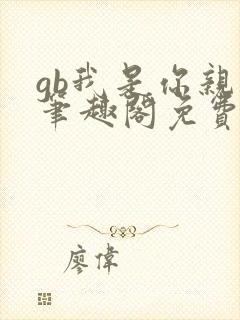 gb我是你親
筆趣閣免費
廖偉